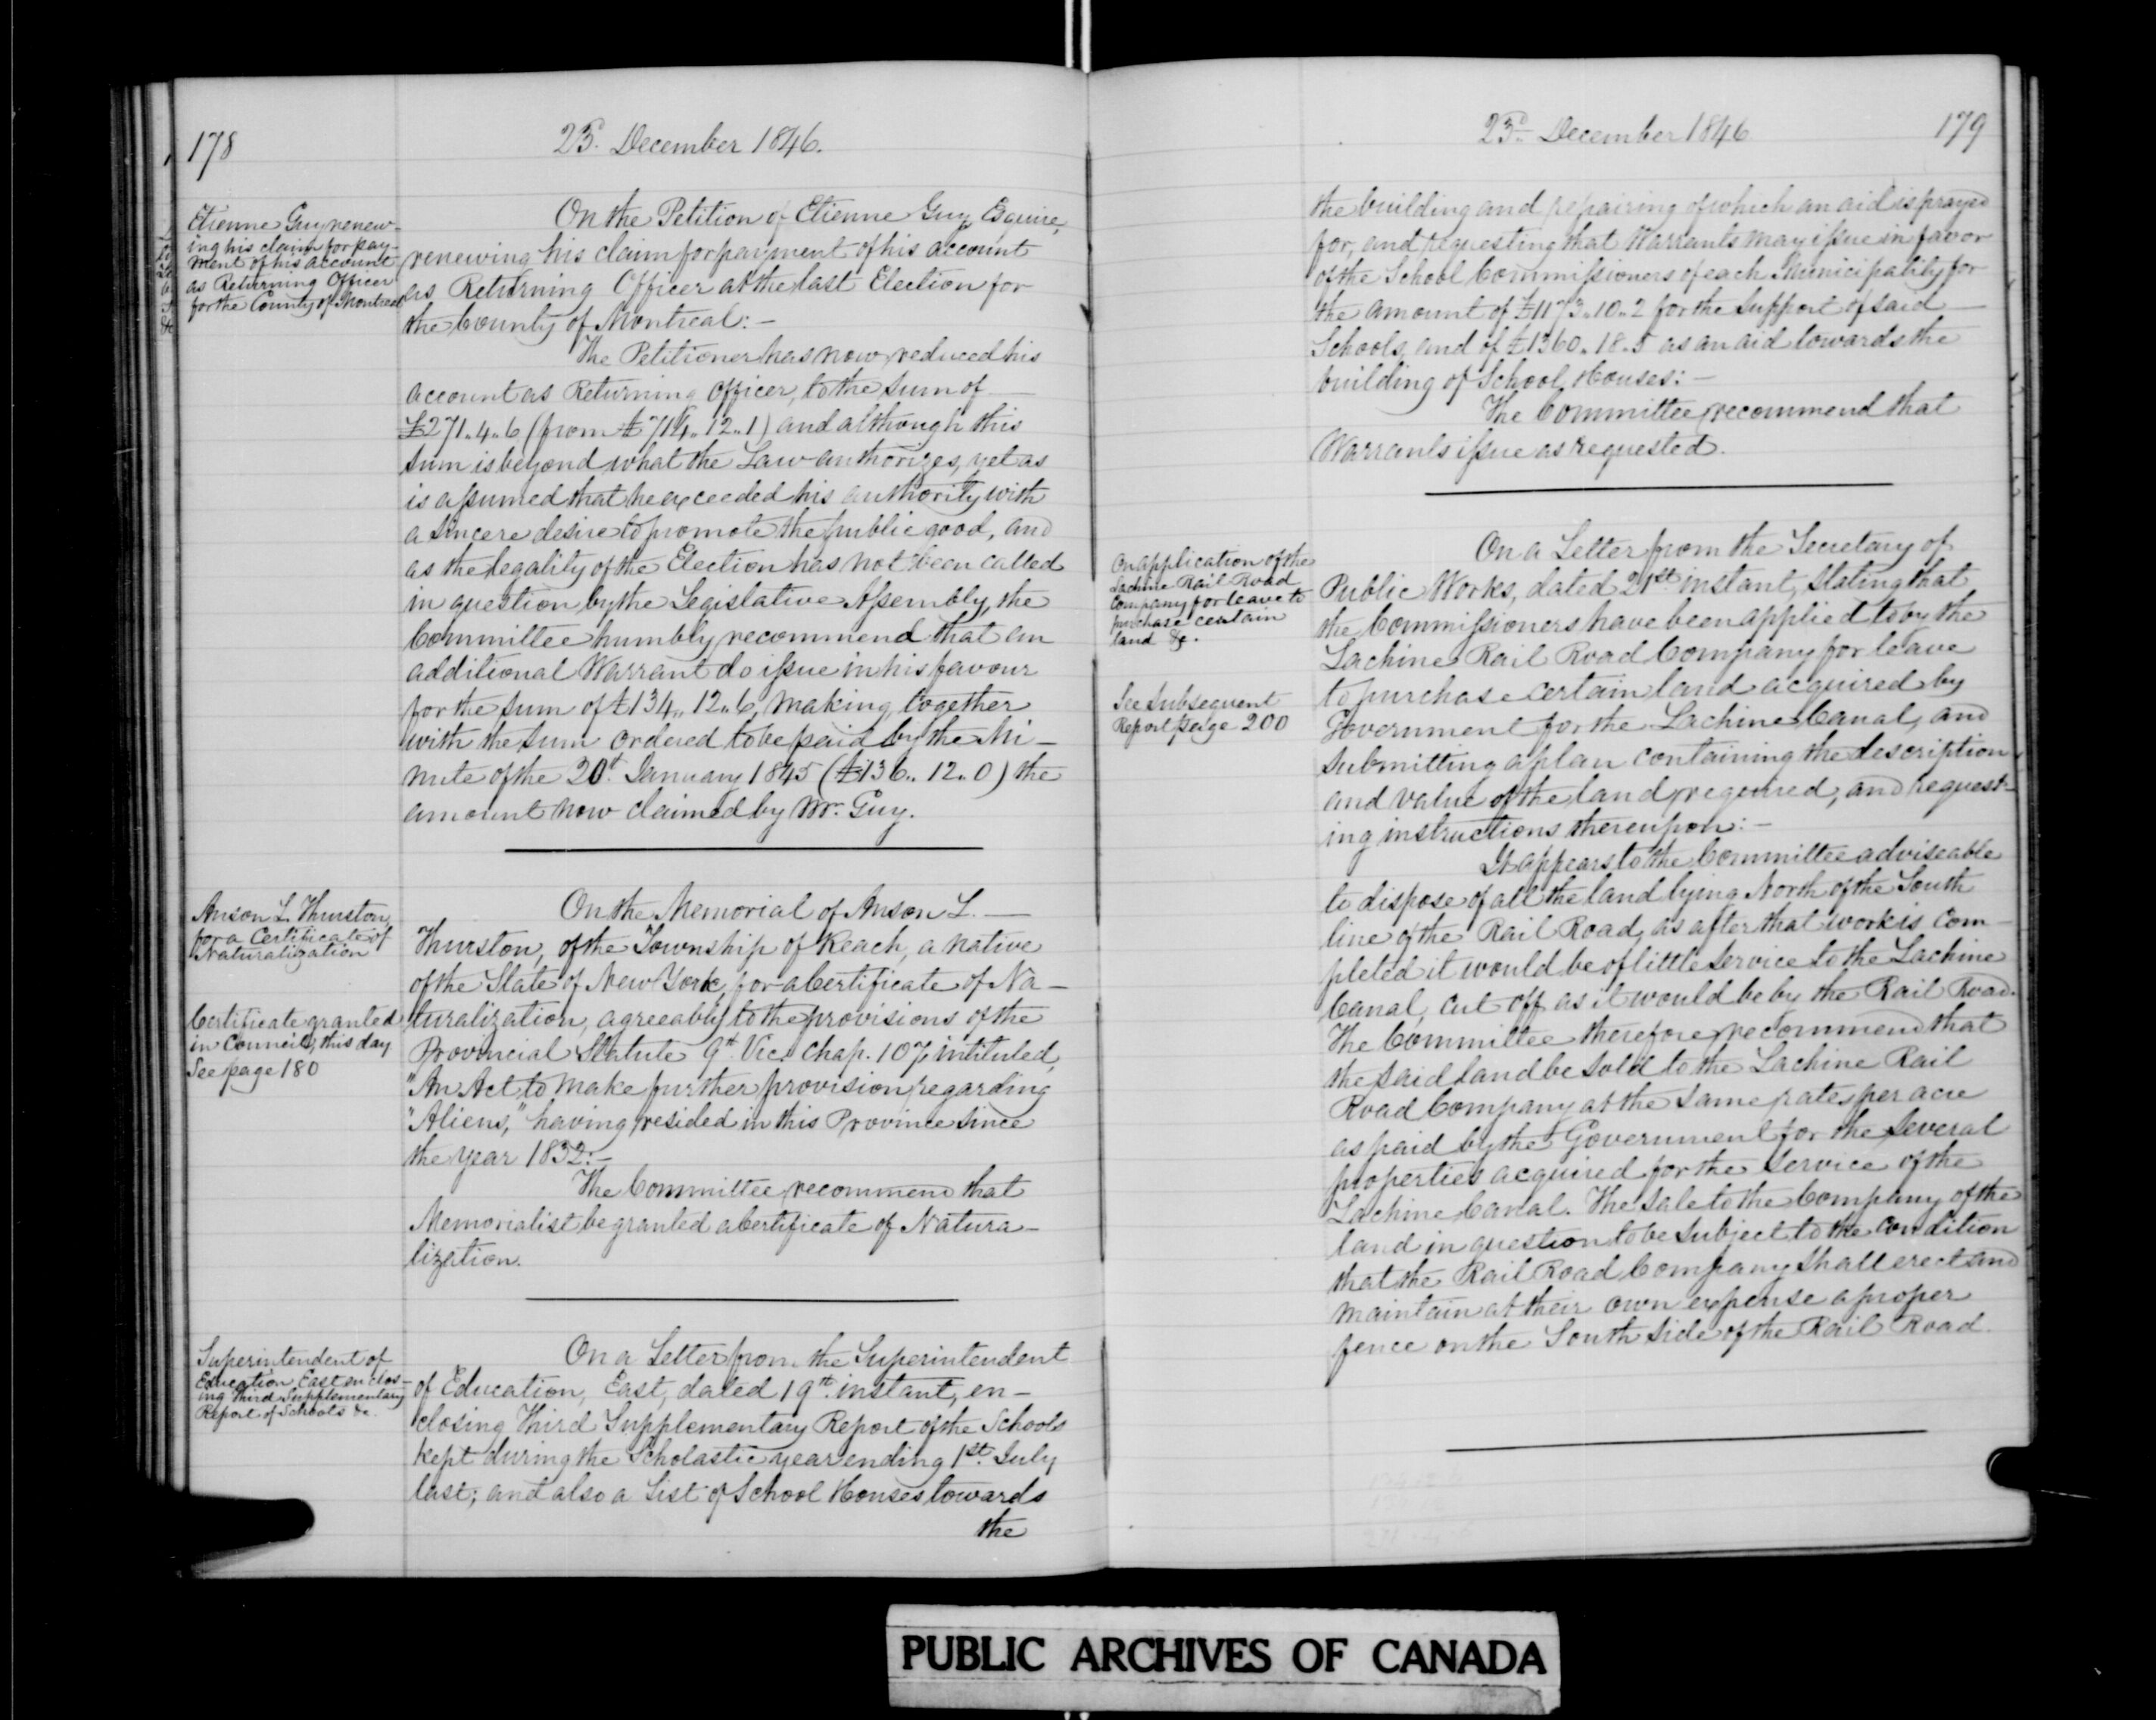 178
23d. December 1846.
Etienne Guy renew-
ing his claim for pay-
ment of his account
as Returning Officer
for the County of Montreal
On the Petition of Etienne Guy Esquire,
renewing his claim for payment of his account
as Returning Officer at the last Election for
the County of Montreal:-
The Petitioner has now reduced his
account as Returning Officer, to the sum of
£271.,4.,6 (from £714.,12.,1) and although this
sum is beyond what the Law authorizes, yet as
is assumed that he exceeded his authority with
a sincere desire to promote the public good, and
as the legality of the Election has not been called
in question by the Legislative Assembly, the
Committee humbly recommend that an
additional Warrant do issue in his favour
for the sum of £134.,12.,6, making, together
with the sum ordered to be paid by the Mi-
nute of the 20t. January 1845 (£136.,12.,0) the
amount now claimed by Mr. Guy.
Anson L. Thurston,
for a Certificate of
Naturalization
Certificate granted
in Council, this day
See page 180
On the Memorial of Anson L.
Thurston, of the Township of Reach, a native
of the State of New York, for a Certificate of Na-
turalization, agreeably to the provisions of the
Provincial Statute 9th. Vic. Chap. 107, intituled,
"An Act to make further provision regarding
"Aliens," having resided in this Province since
the year 1832:-
The Committee recommend that
Memorialist be granted a Certificate of Natura-
lization.
Superintendent of
Education, East enclos-
ing third Supplementary
Report of Schools &c.
On a Letter from the Superintendent
of Education, East, dated 19th. instant, en-
closing Third Supplementary Report of the Schools
kept during the Scholastic year ending 1st. July
last; and also a List of School Houses towards
the
23d. December 1846
179
the building and repairing of which an aid is prayed
for, and requesting that Warrants may issue in favor
of the School Commissioners of each Municipality for
the amount of £1173.,10.,2 for the support of said
Schools, and of £1360.,18.,5 as an aid towards the
building of School Houses:-
The Committee recommend that
Warrants issue as requested.
On application of the
Lachine Rail Road
Company for leave to
purchase certain
land &c.
See Subsequent
Report page 200
On a Letter from the Secretary of
Public Works, dated 21st. instant, stating that
the Commissioners have been applied to by the
Lachine Rail Road Company for leave
to purchase certain land acquired by
Government for the Lachine Canal, and
submitting a plan containing the description
and value of the land required, and request-
ing instructions thereupon:-
It appears to the Committee adviseable
to dispose of all the land lying North of the South
line of the Rail Road, as after that work is com-
pleted it would be of little service to the Lachine
Canal, cut off as it would be by the Rail Road.
The Committee therefore recommend that
the said land be sold to the Lachine Rail
Road Company at the same rates per acre
as paid by the Government for the several
properties acquired for the service of the
Lachine Canal. The sale to the Company of the
land in question to be subject to the condition
that the Rail Road Company shall erect and
maintain at their own expense a proper
fence on the South side of the Rail Road.
PUBLIC ARCHIVES OF CANADA